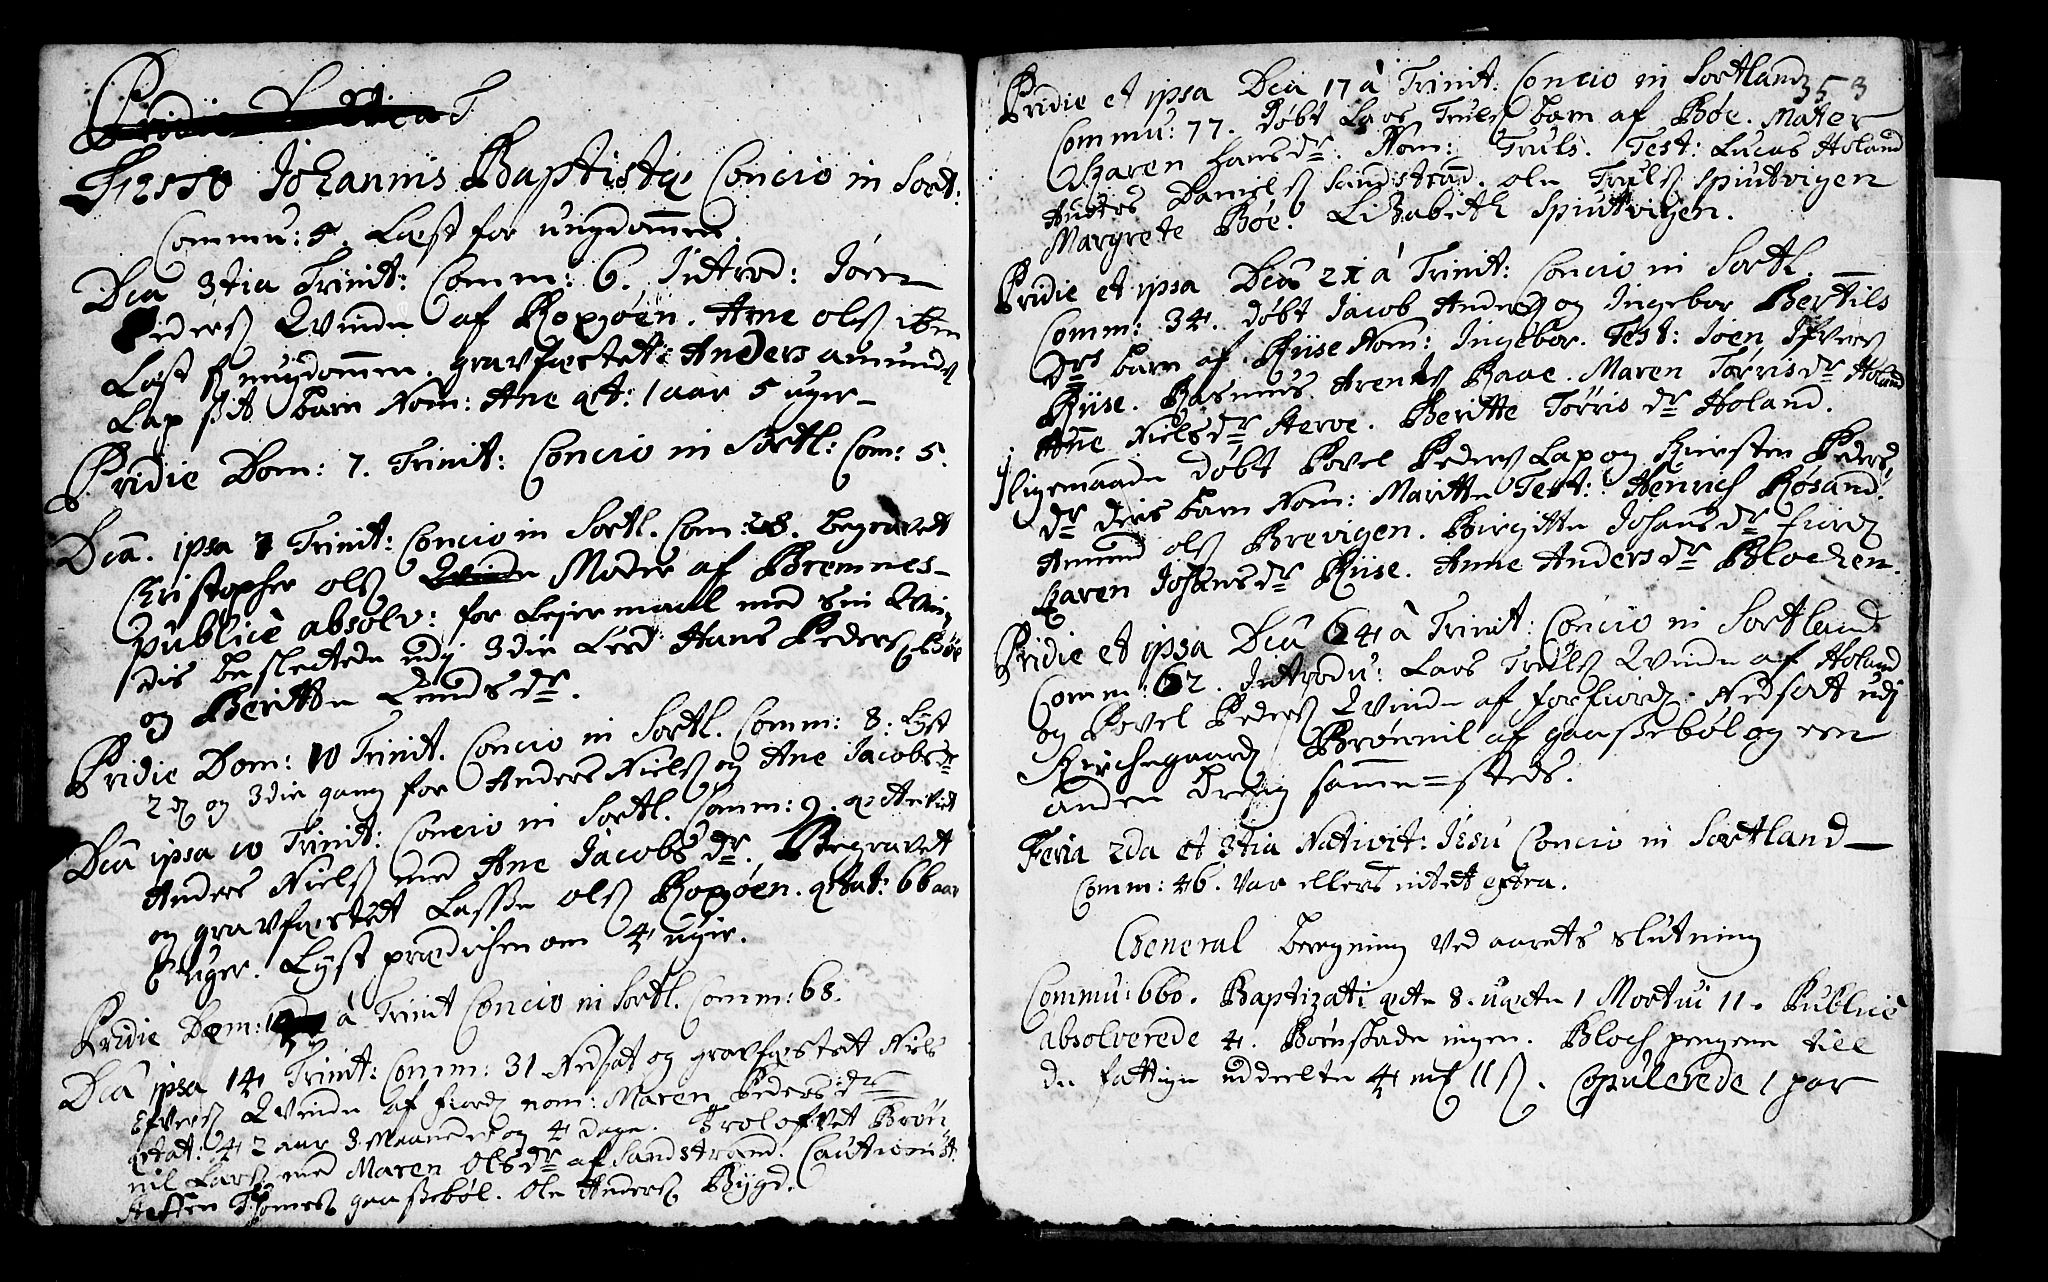 Festo Johannis Baptistæ Concio in Sort:
Commu: 5. Læst for ungdommen.
Dca 3tia Trinit: Comm: 6. Introd: Jørn
Piderß Qvinde af Kopøen. Ane olß
Læst f ungdommen. gravfæstet: Anders amundß
Lap sit barn Nom: Ane æt: 1 aar 5 uger
Pridie Dom: 7. Trinit: Concio in Sortl: Com: 5.
Dca. ipsa 7 Trinit: Concio in Sortl. Com: 28. begravet
Christopher olß Moder af Bremnes
publicè absolv: for Leiermaal med sin Qvin
dis besledtede udj 3die Leed Hans Pederß Bøe
og Beritte dr.
Pridie Dom: 10 Trinit. Concio in Sortl. Comm: 8. Lyst
2d og 3die gang for Anders Nielß og Ane Jacobsdr
Dca ipsa 10 Trinit: Concio in Sortl. Comm: 9.
Anders Nielß med Ane Jacobs dr. Begravet
og gravfæstet Lasse olß Kopøen. ætat: 66 aar
uger. Lyst prædichen om 4 uger.
Pridie Dom: à Trinit Concio in Sortl. Comm: 68.
Dca ipsa 14 Trinit: Comm: 31. Nedsat og gravfæstet Niels
Ifverß Qvinde af fiord nom: Maren Peders dr
ætat: 42 aar 3 Maaneder og 4 dage. Trolofvet Brøn
nil Larß med Maren Olsdr af Sandstrand. Cautionist.
Steffen Thomeß gaassebøl. Ole Anderß Bygd.
353
Pridie et ipsa Dca 17 à Trinit: Concio in Sortland
Commu: 77. Døbt Lars Trulß barn af Bøe. Mater
Karen Hansdr. Nom: Truls. Test: Lucas Holand
Anders Danielß Sandstrand. ole Trulß Spiutvigen
Margrete Bøe. Lisabeth Spiutvigen.
Pridie et ipsa Dca 21 à Trinit: Concio in Sortl.
Comm: 34. Døbt Jacob Anderß og Ingebor Bertils
drs barn af Kiise Nom: Ingebor. Test: Joen Ifverß
Kiise. Rasmus Arentß Raae. Maren Tørrisdr Holand
Anne Nielsdr Herve. Beritte Tørris dr Holand.
I ligemaade døbt Povel Pederß Lap og Kiersten Peders
dr deris barn Nom: Maritte Test: Henrich Kosand.
Amund olß Brevigen. Birgitte Johans dr fiord
Karen Johansdr Kiise. Anne Andersdr Blochen.
Pridie et ipsa Dca 24 à Trinit: Concio in Sortland
Comm: 62. Introdu: Lars Trulß Qvinde af Holand
og Povel Pederß Qvinde af forfiord. Nedsatt udj
Kirchegaard Brønnil af gaassebøl og een
anden dreng samme=steds.
Feria 2da et 3tia Nativit: Jesu Concio in Sortland
Comm: 46. Var ellers intet extra.
General beregning ved aarets slutning
Commu: 660. Baptizati ægte 8. uægte 1 Mortui 11. Publicè
absolverede 4. Børnskade ingen. Bloch pengene till
de fattige uddeelte 4 mk 11 ß. Copulerede 1 par